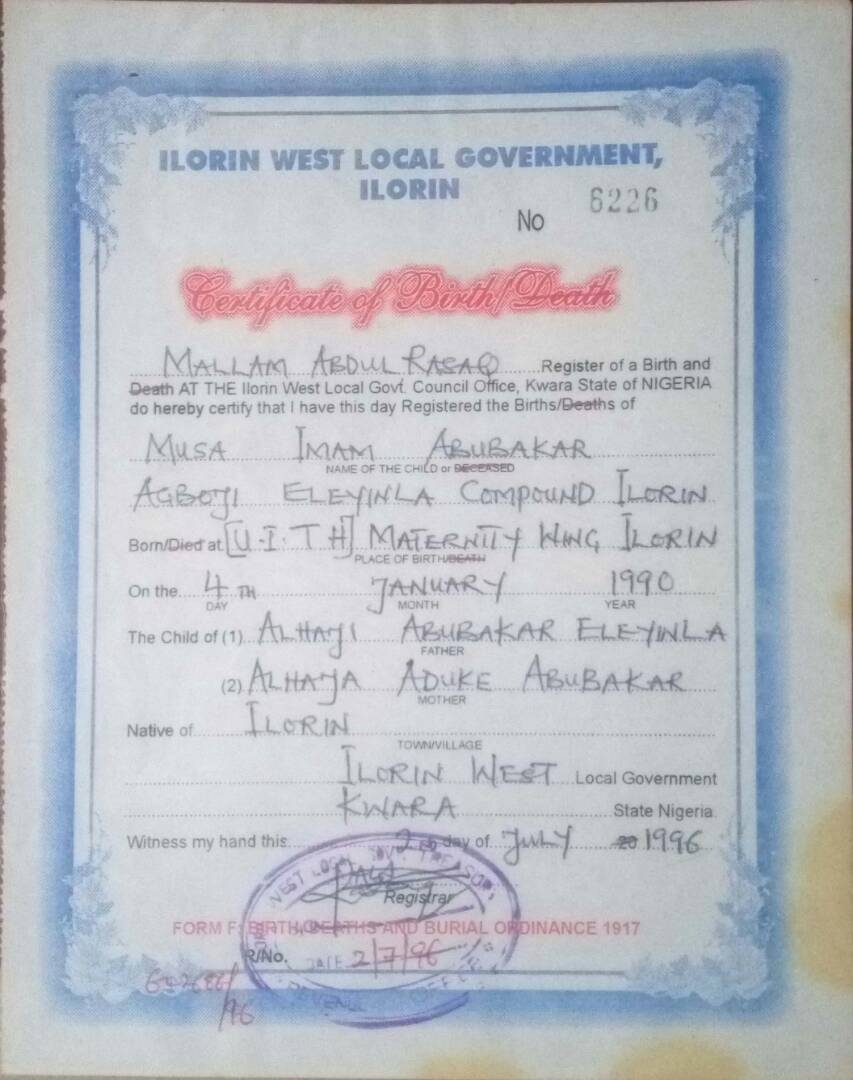 ILORIN WEST LOCAL GOVERNMENT,
ILORIN
No 6226
Certificate of Birth/Death
MALLAM ABDUL RASAQ Register of a Birth and
Death AT THE Ilorin West Local Govt. Council Office, Kwara State of NIGERIA
do hereby certify that I have this day Registered the Births/Deaths of
MUSA IMAM ABUBAKAR
NAME OF THE CHILD or DECEASED
AGBOJI ELEYINLA COMPOUND ILORIN
Born/Died at [U.I.T H] MATERNITY WING ILORIN
PLACE OF BIRTH/DEATH
On the 4TH JANUARY 1990
DAY MONTH YEAR
The Child of (1) ALHAJI ABUBAKAR ELEYINLA
FATHER
(2) ALHAJA ADUKE ABUBAKAR
MOTHER
Native of ILORIN
TOWN/VILLAGE
ILORIN WEST Local Government
KWARA State Nigeria
Witness my hand this 2nd day of JULY 20 1996
WEST LOCAL GOVT. TREASURY
Registrar
FORM F: BIRTH, DEATHS AND BURIAL ORDINANCE 1917
R/No. DATE 2/7/96
REVENUE
/96